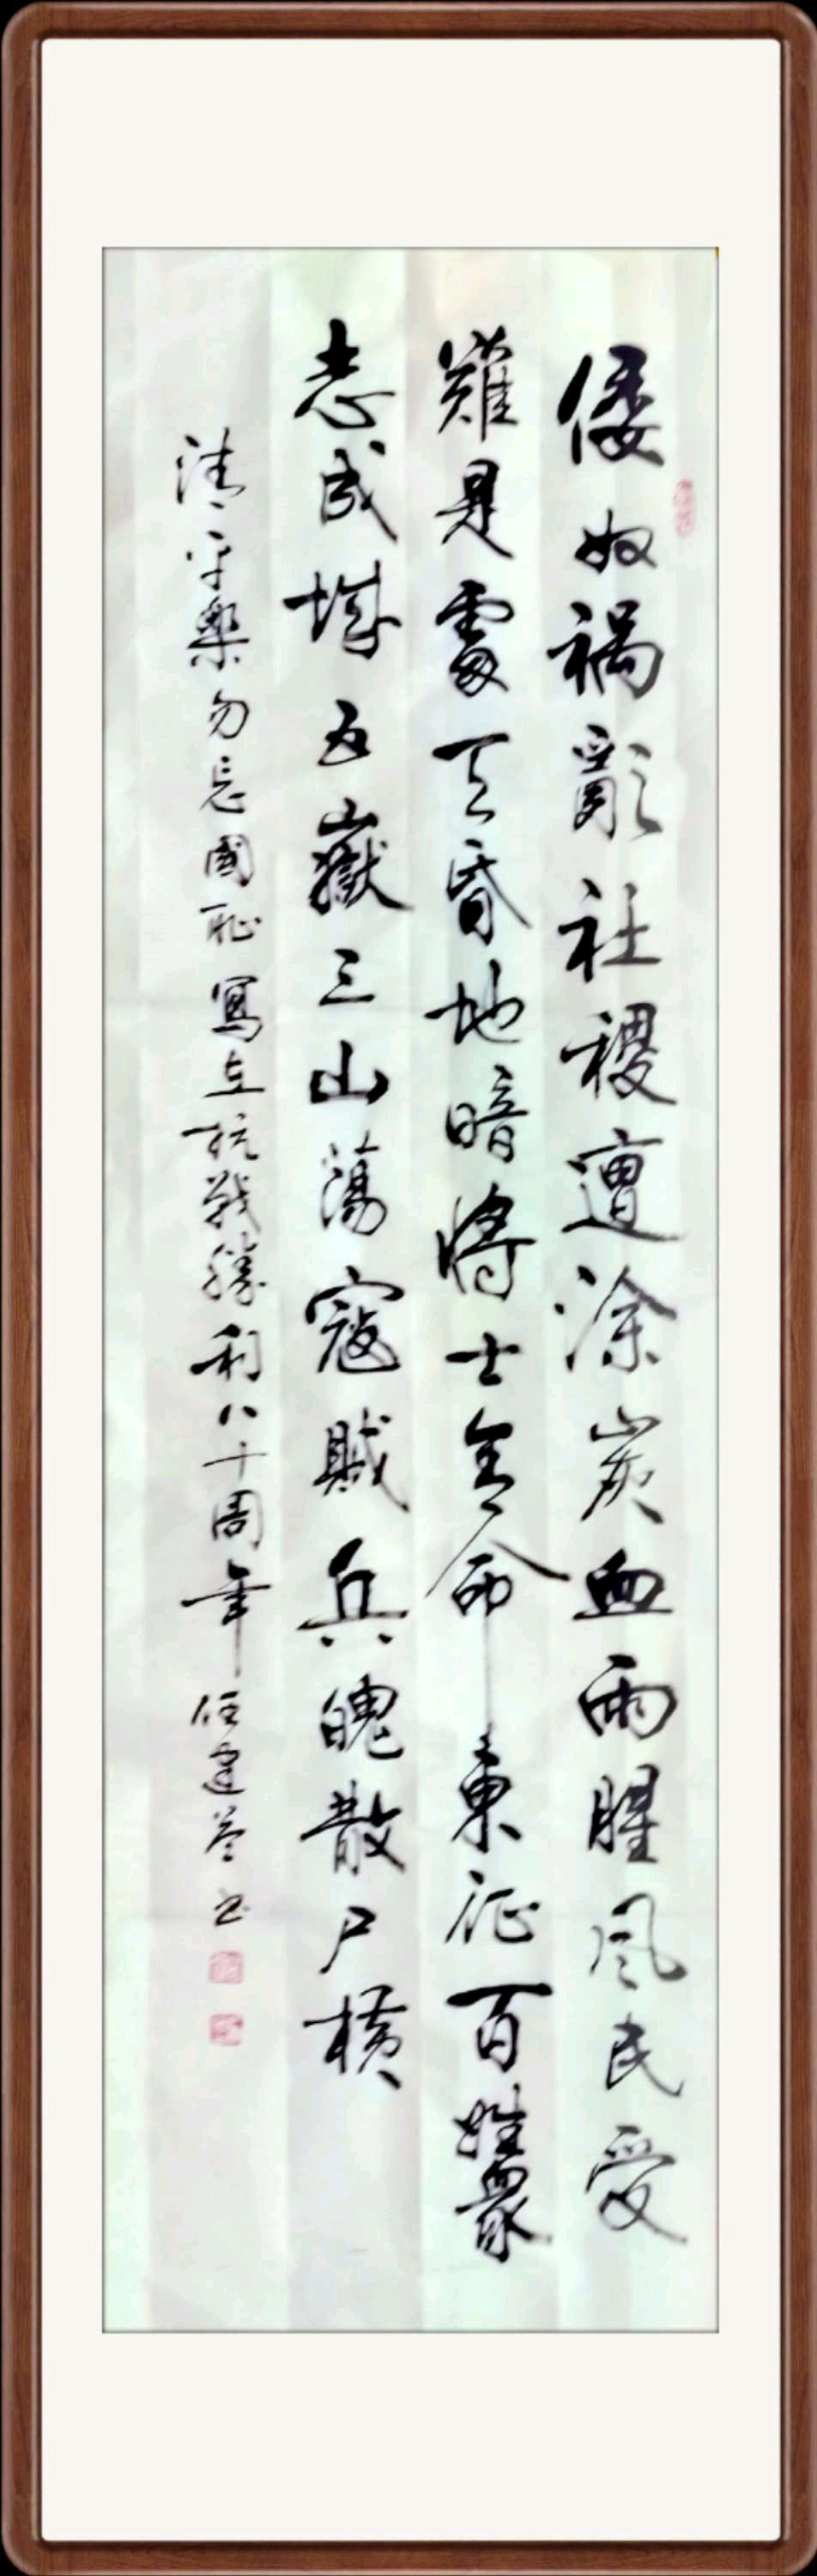 倭奴禍亂社稷遭涂炭血雨腥風民受
難是處天昏地暗將士舍命東征百姓眾
志成城五嶽三山蕩寇賊兵魄散尸橫
清平樂勿忘國恥寫在抗戰勝利八十周年任建書